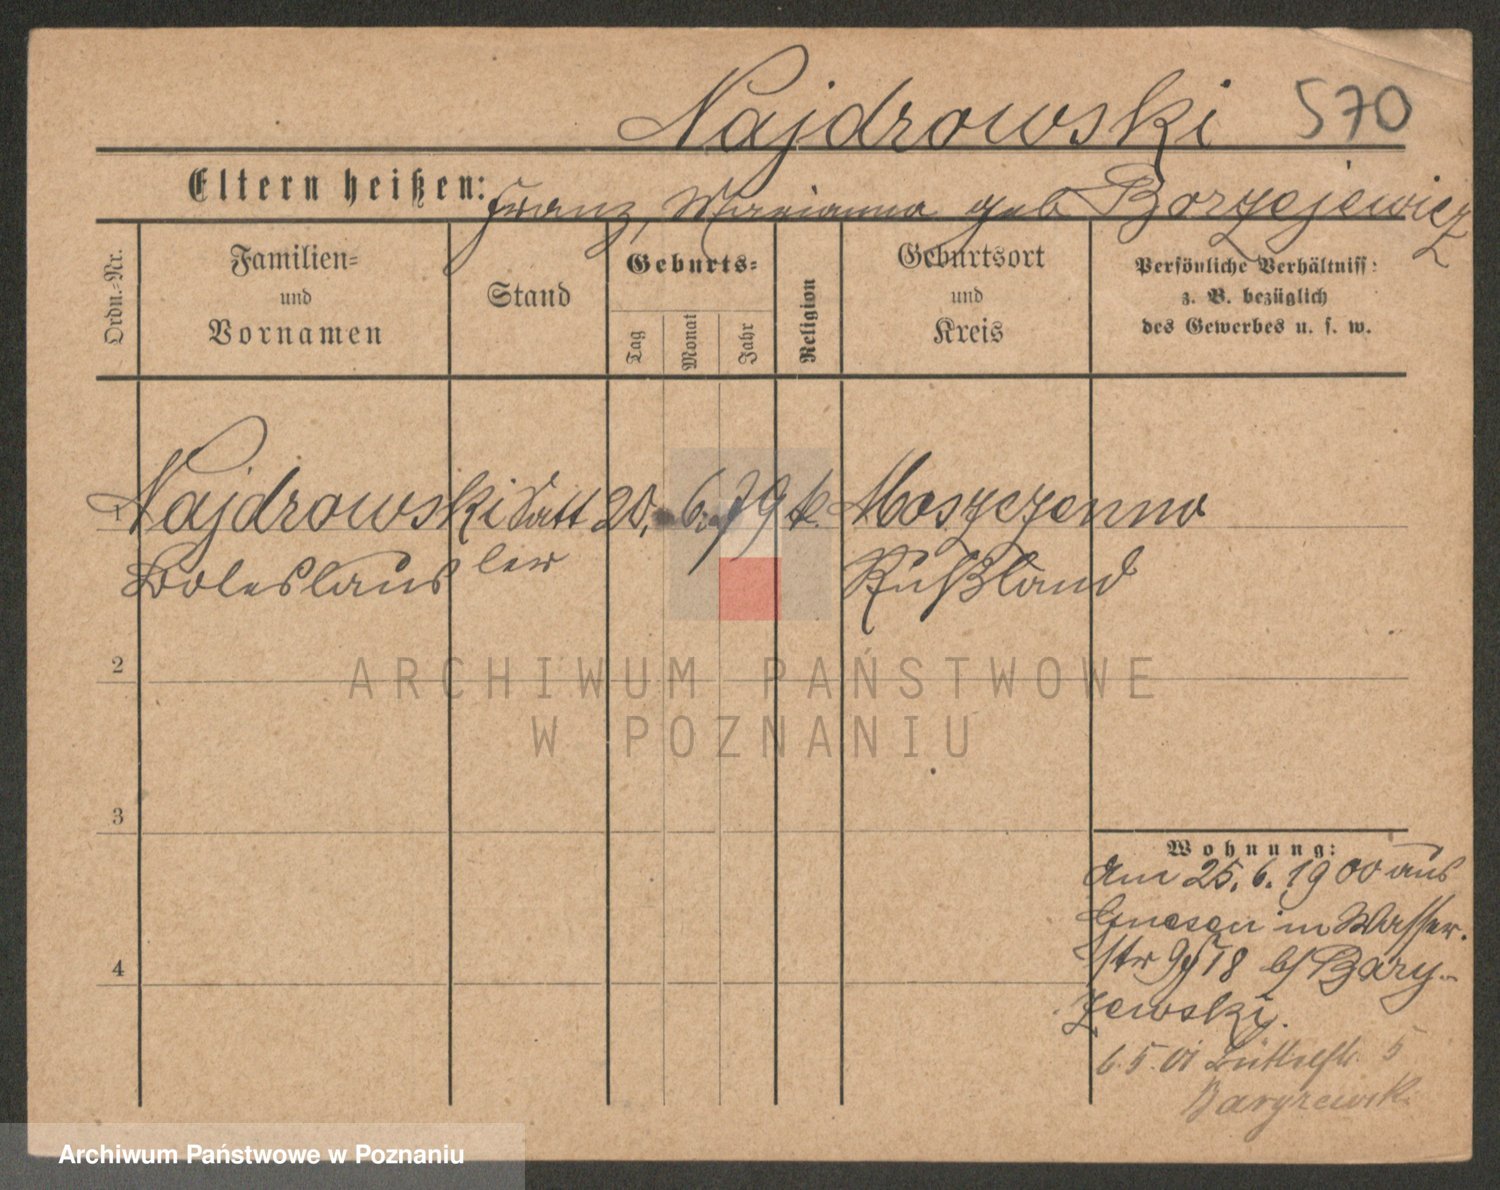 Najdrowski 570
Eltern heißen: Franz, Marianna geb Borzejewicz
Ordn.-Nr.
Familien-
und
Vornamen
Stand
Geburts-
Tag
Monat
Jahr
Religion
Geburtsort
und
Kreis
Persönliche Verhältniss:
z. B. bezüglich
des Gewerbes u. s. w.
1 Najdrowski Satt 20. 6. 79 k. Moszczenno
Boleslaus ler Rußland
2
ARCHIWUM PAŃSTWOWE
W POZNANIU
3
Wohnung:
Am 25. 6. 1900 aus
Gnesen in Wasser-
str 18 b/ Bary-
zewski.
6.5.01 5
Baryzewski
4
Archiwum Państwowe w Poznaniu